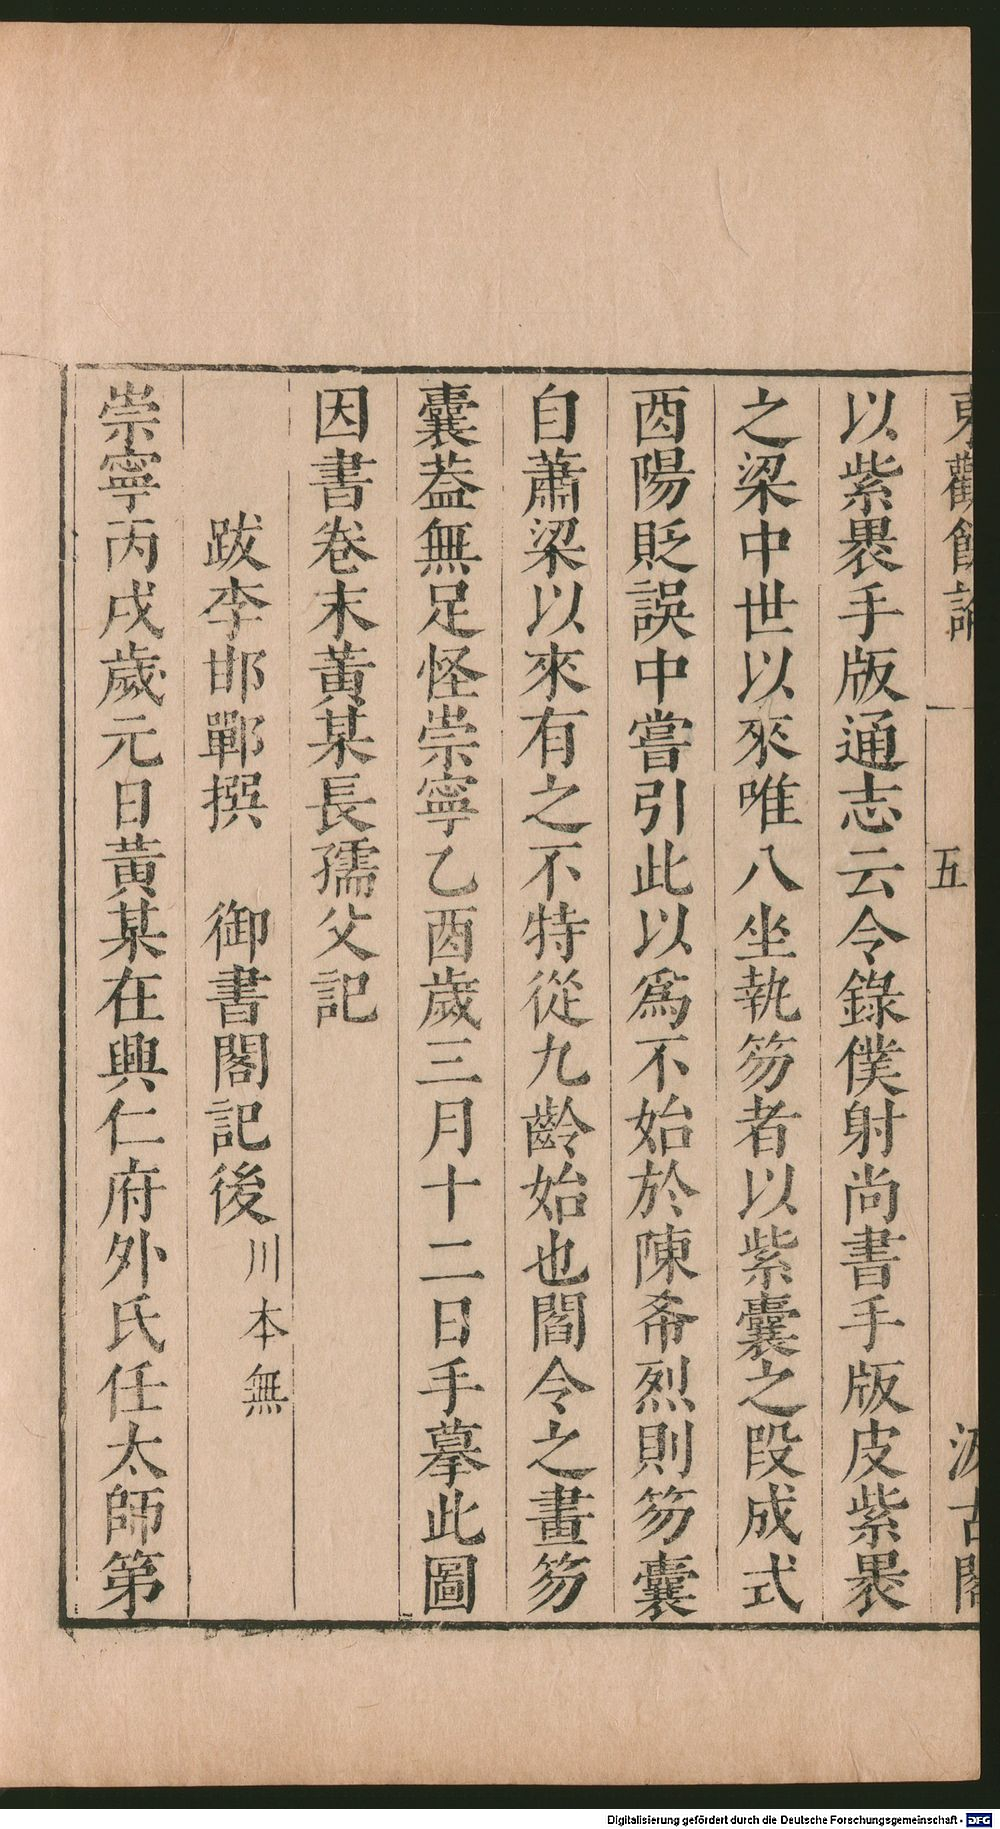 東觀餘論 一 五 汲古閣
以紫裠手版通志云令錄僕射尚書手版皮紫裠
之梁中世以來唯八坐執笏者以紫囊之段成式
酉陽貶誤中嘗引此以爲不始於陳希烈則笏囊
自蕭梁以來有之不特從九齡始也閻令之畫笏
囊葢無足怪崇寧乙酉歲三月十二日手摹此圖
因書卷末黃某長孺父記
跋李邯鄲撰 御書閣記後川本無
崇寧丙戌歲元日黃某在興仁府外氏任太師第
Digitalisierung gefördert durch die Deutsche Forschungsgemeinschaft - DFG